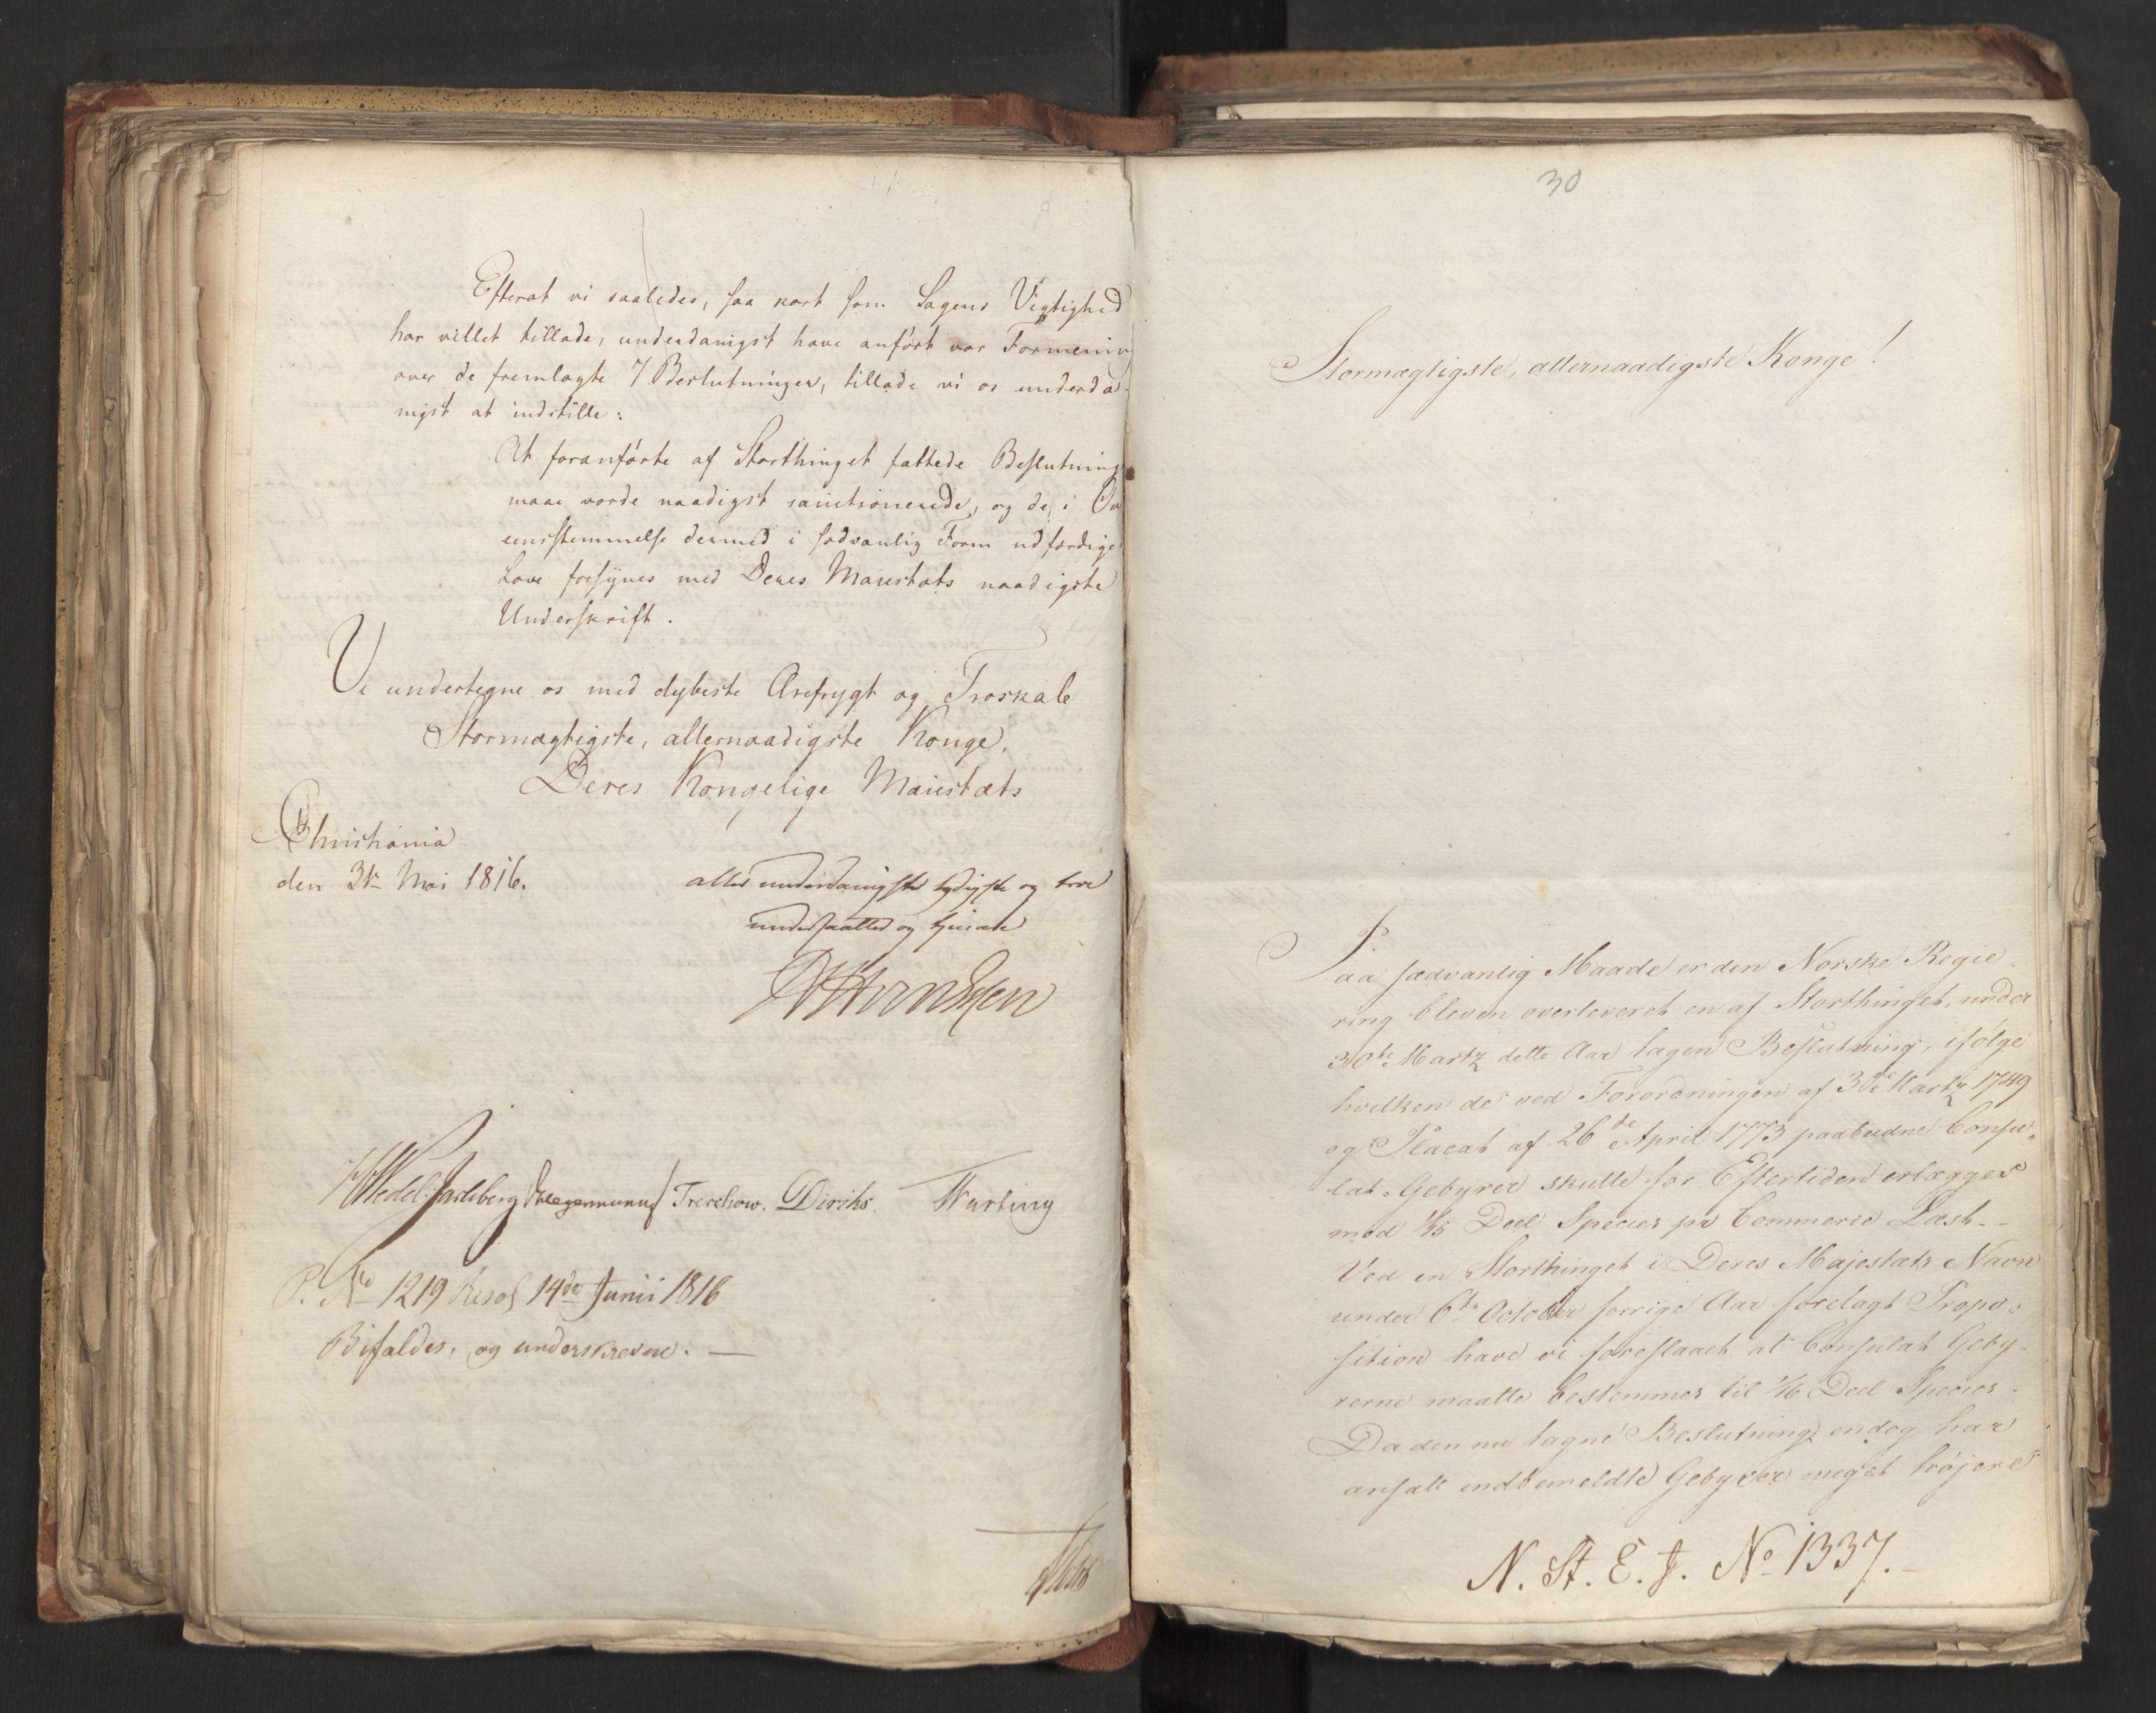 Efterat vi saaledes, saa kort som Sagens Vigtighed
har villet tillade, underdanigst have anført vor Formening
over de fremlagte 7 Beslutninger, tillade vi os underda-
nigst at indstille:
At foranførte af Storthinget fattede Beslutning
maae vorde naadigst sanctionerede, og de i Ov
eensstemmelse dermed i sædvanlig Form udfærdige
Love forsynes med Deres Maiestæts naadigste
Underskrift.
Vi undertegne os med dybeste Ærefrygt og Troskab
Stormægtigste, allernaadigste Konge,
Deres Kongelige Maiestæts
Christiania
den 31te Mai 1816.
allerunderdanigste lydigste og troe
undersaatter og tjenere
Wedel Jarlsberg Treschow. Diriks.
P. No 1219 Resol 14de Junii 1816
Bifaldes, og underskreven. —
30
Stormægtigste, allernaadigste Konge!
Paa sædvanlig Maade er den Norske Regie-
ring bleven overleveret en af Storthinget, under
30te Martz dette Aar tagen Beslutning, ifølge
hvilken de ved Forordningen af 3de Martz 1749
og Placat af 26de April 1773 paabudne Consu-
lat-Gebyrer skulle for Eftertiden erlægges
med 1/15 Deel Species pr Commerce Læst. –
Ved en Storthinget i Deres Majestæts Navn
under 6te October forrige Aar forelagt Propo-
sition have vi foreslaaet at Consulat Geby-
rerne maatte bestemmes til 1/16 Deel Species.
Da den nu tagne Beslutning endog har
ansatt indbemeldte Gebyrer meget højere
N. St. E. J. No 1337. –